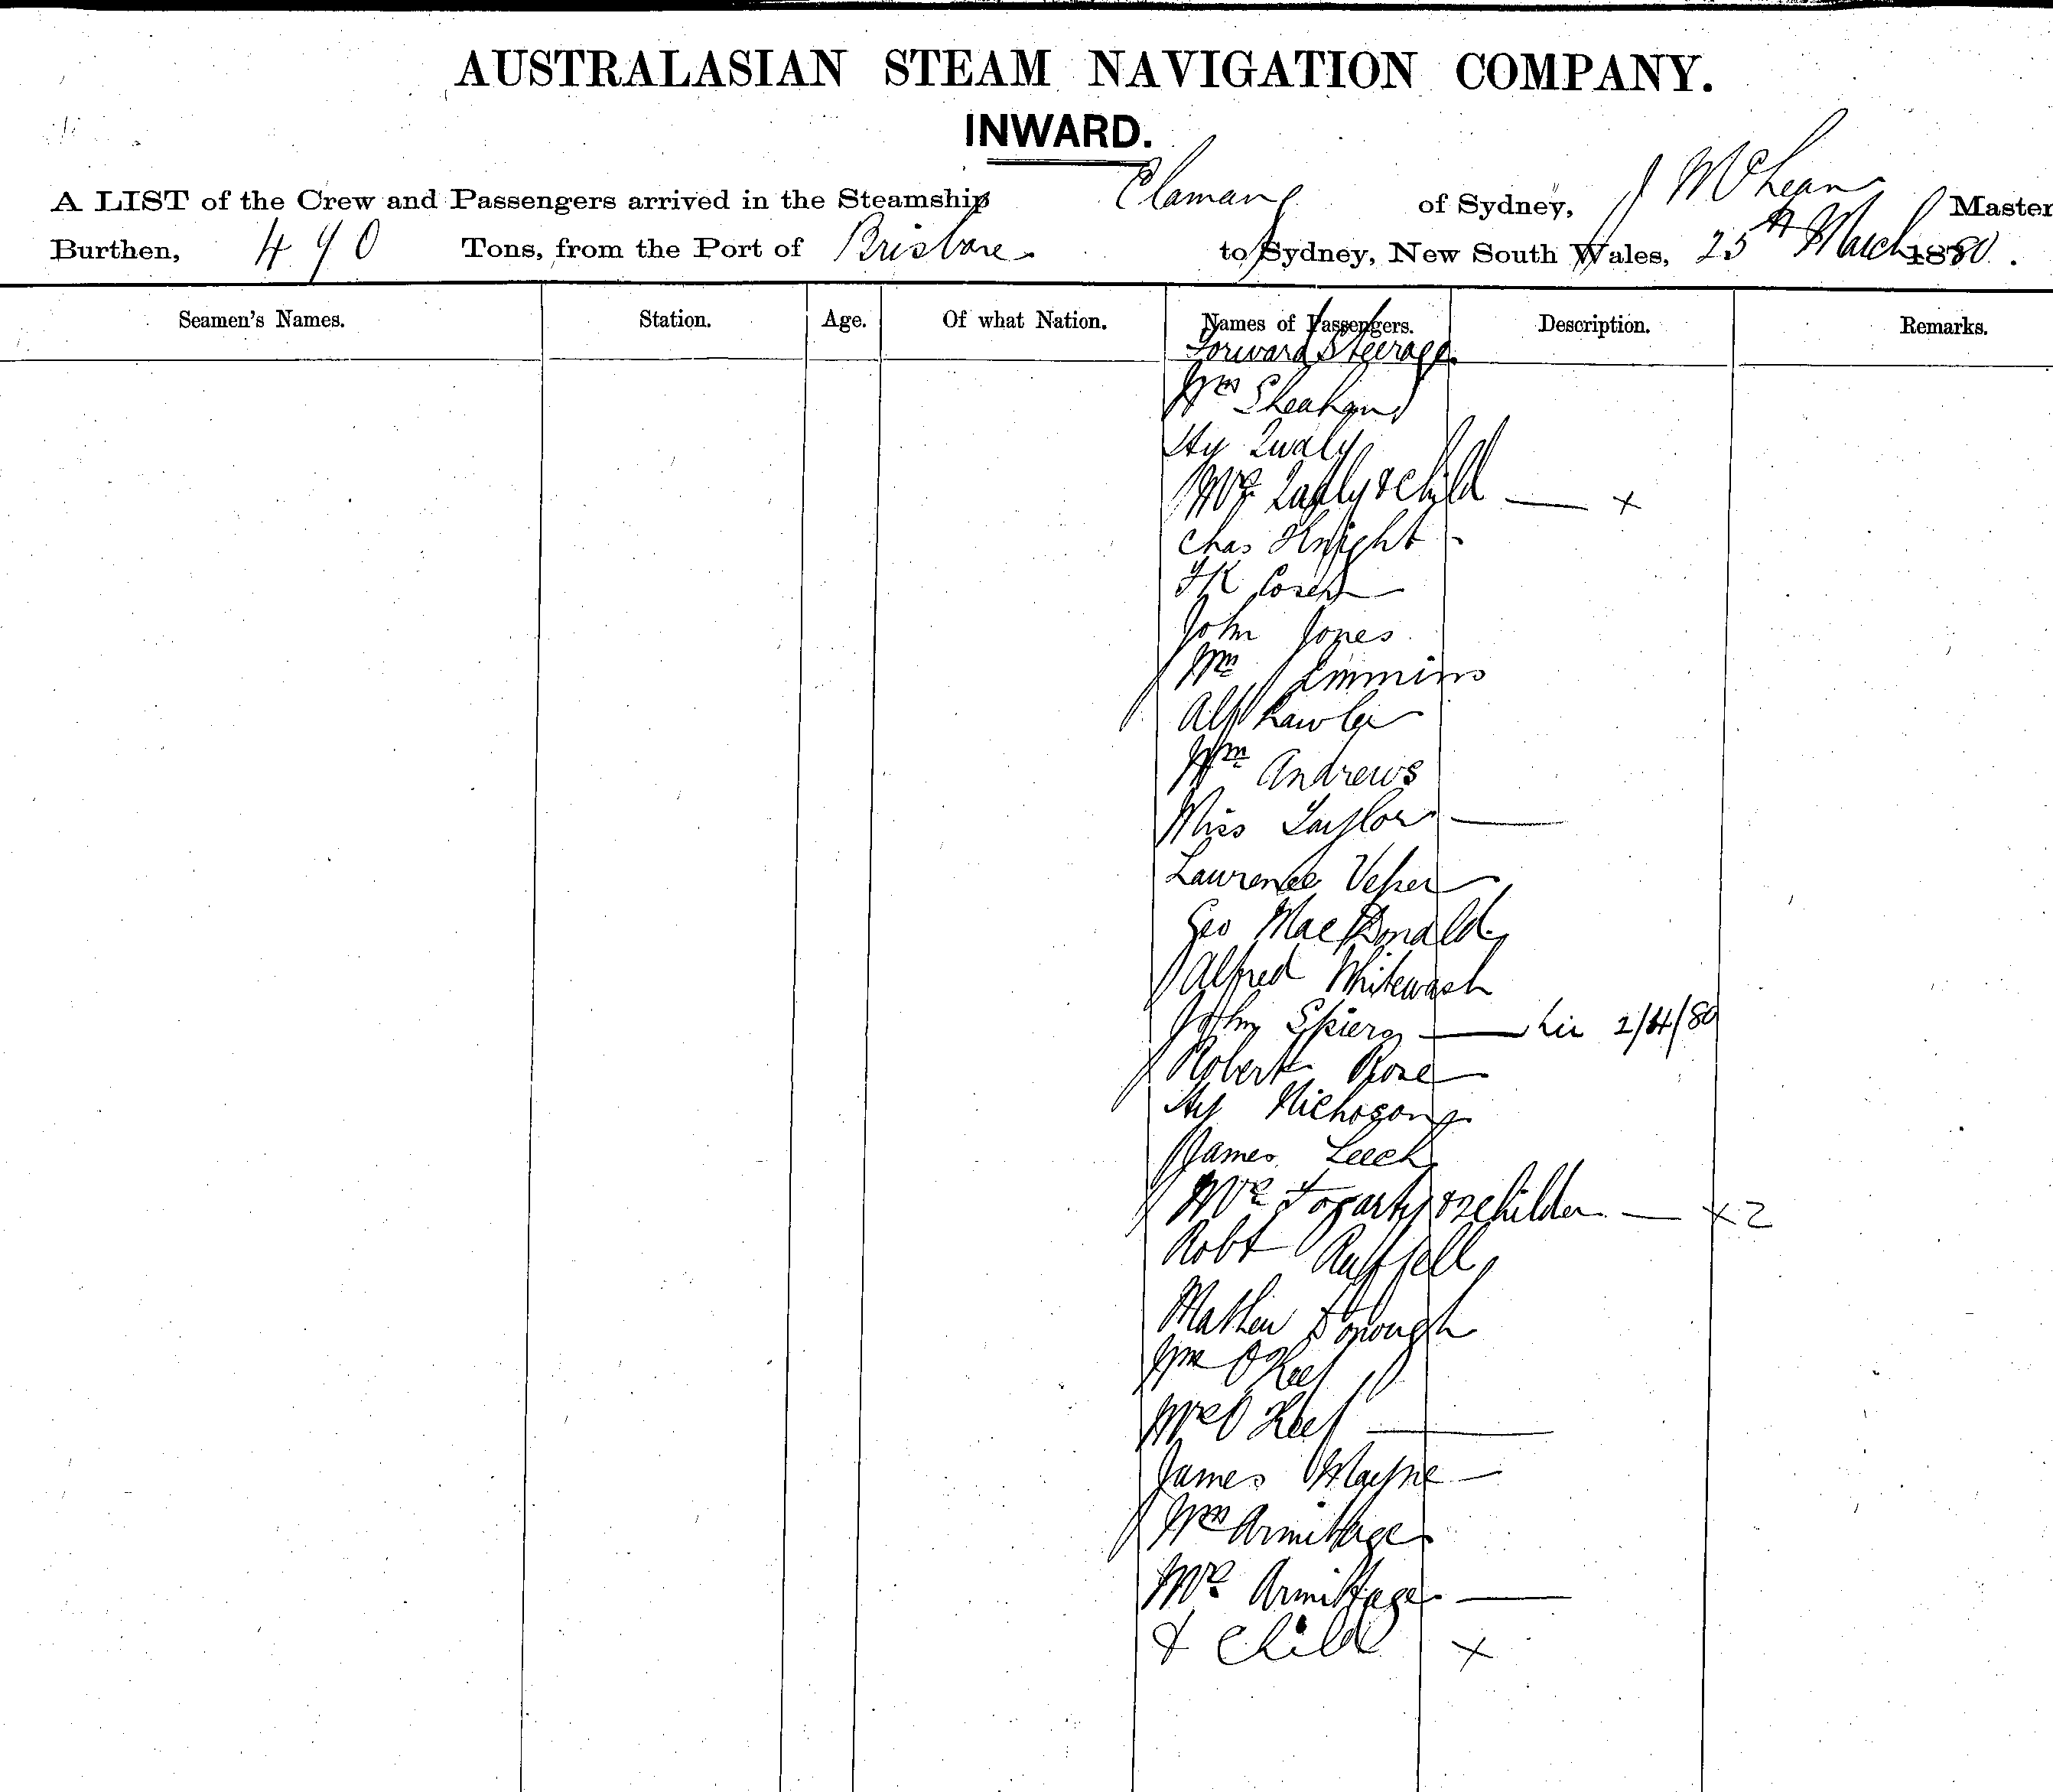 AUSTRALASIAN STEAM NAVIGATION COMPANY.
INWARD.
A LIST of the Crew and Passengers arrived in the Steamship Elamang of Sydney, J McLean Master
Burthen, 490 Tons, from the Port of Brisbane to Sydney, New South Wales, 25th March 1880.
Seamen's Names. Station. Age. Of what Nation. Names of Passengers. Description. Remarks.
Forward Steerage
Wm Sheahan
Hy
Mrs & Child — x
Chas Knight
John Jones
Wm Timmins
Alf Lawler
Wm Andrews
Miss Taylor —
Laurence
Geo MacDonald
Alfred Whitewash
John Spiers — 2/4/80
Robert Rose
Hy Nichoson
James Leech
Mrs Fogarty & 2 children — x 2
Robt Ruffell
Mathew Donough
Wm O'Keef
Mrs O'Keef —
James Mayne
Wm Armitage
Mrs Armittage —
& Child x